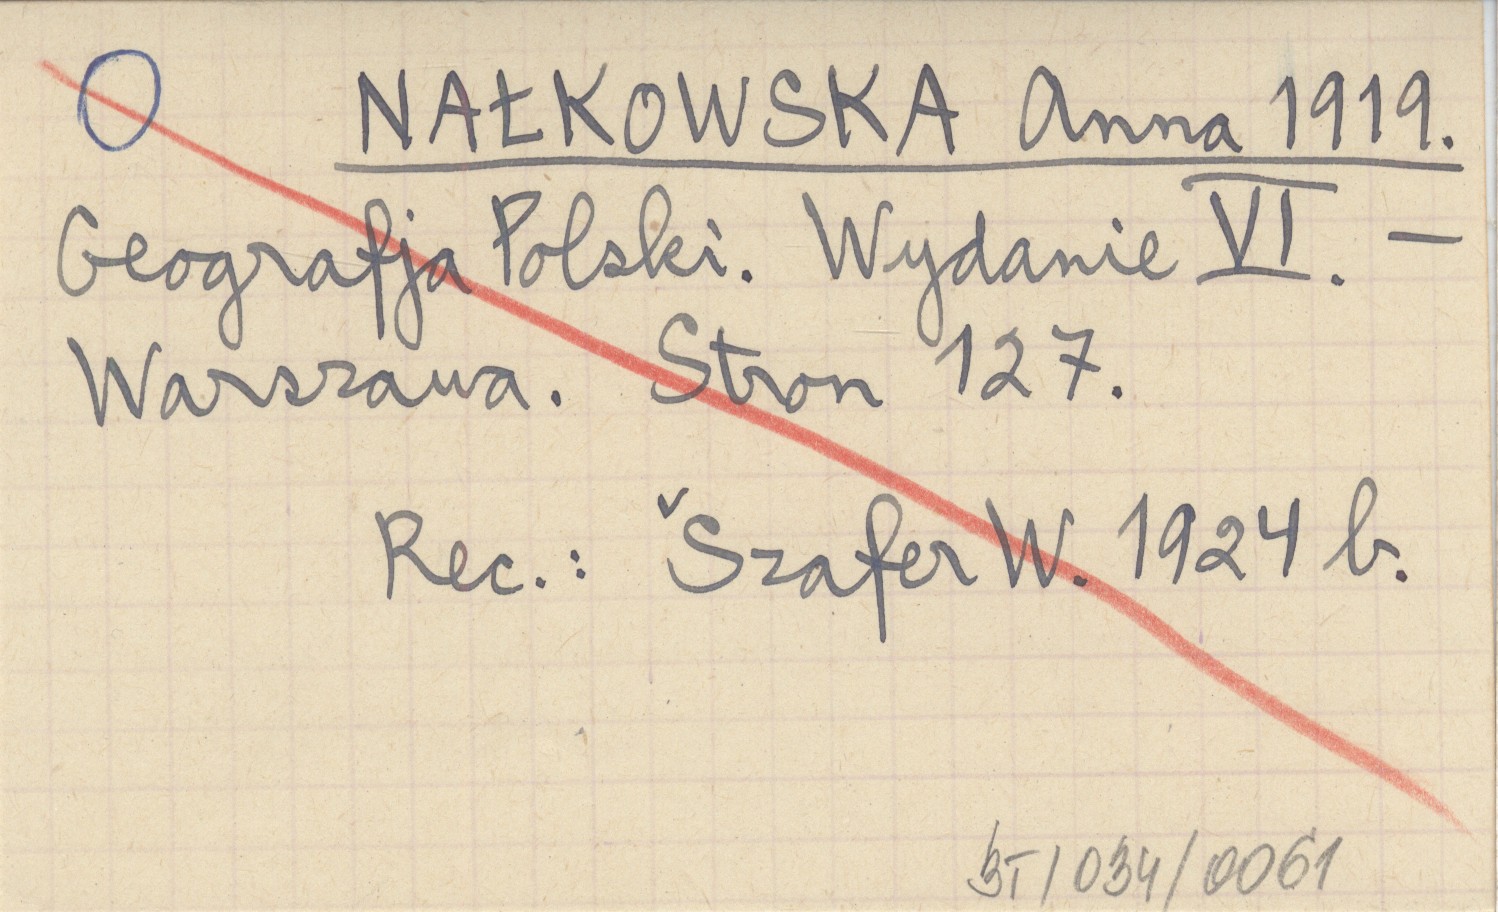 O NAŁKOWSKA Anna 1919.
Geografja Polski. Wydanie VI. —
Warszawa. Stron 127.
Rec.: ˇSzafer W. 1924 b.
3T/034/0061